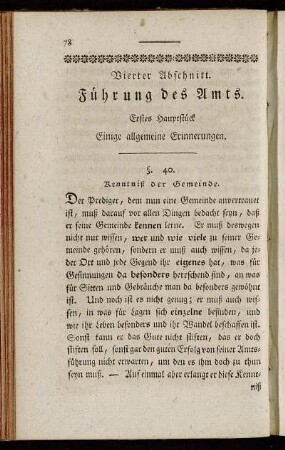 78
Vierter Abschnitt.
Führung des Amts.
Erstes Hauptstück
Einige allgemeine Erinnerungen.
§. 40.
Kenntniß der Gemeinde.
Der Prediger, dem nun eine Gemeinde anvertrauet
ist, muß darauf vor allen Dingen bedacht seyn, daß
er seine Gemeinde kennen lerne. Er muß deswegen
nicht nur wissen, wer und wie viele zu seiner Ge-
meinde gehören, sondern er muß auch wissen, da je-
der Ort und jede Gegend ihr eigenes hat, was für
Gesinnungen da besonders herrschend sind, an was
für Sitten und Gebräuche man da besonders gewöhnt
ist. Und noch ist es nicht genug; er muß auch wis-
sen, in was für Lagen sich einzelne befinden, und
wie ihr Leben besonders und ihr Wandel beschaffen ist.
Sonst kann er das Gute nicht stiften, das er doch
stiften soll, sonst gar den guten Erfolg von seiner Amts-
führung nicht erwarten, um den es ihm doch zu thun
seyn muß. — Auf einmal aber erlangt er diese Kennt-
niß